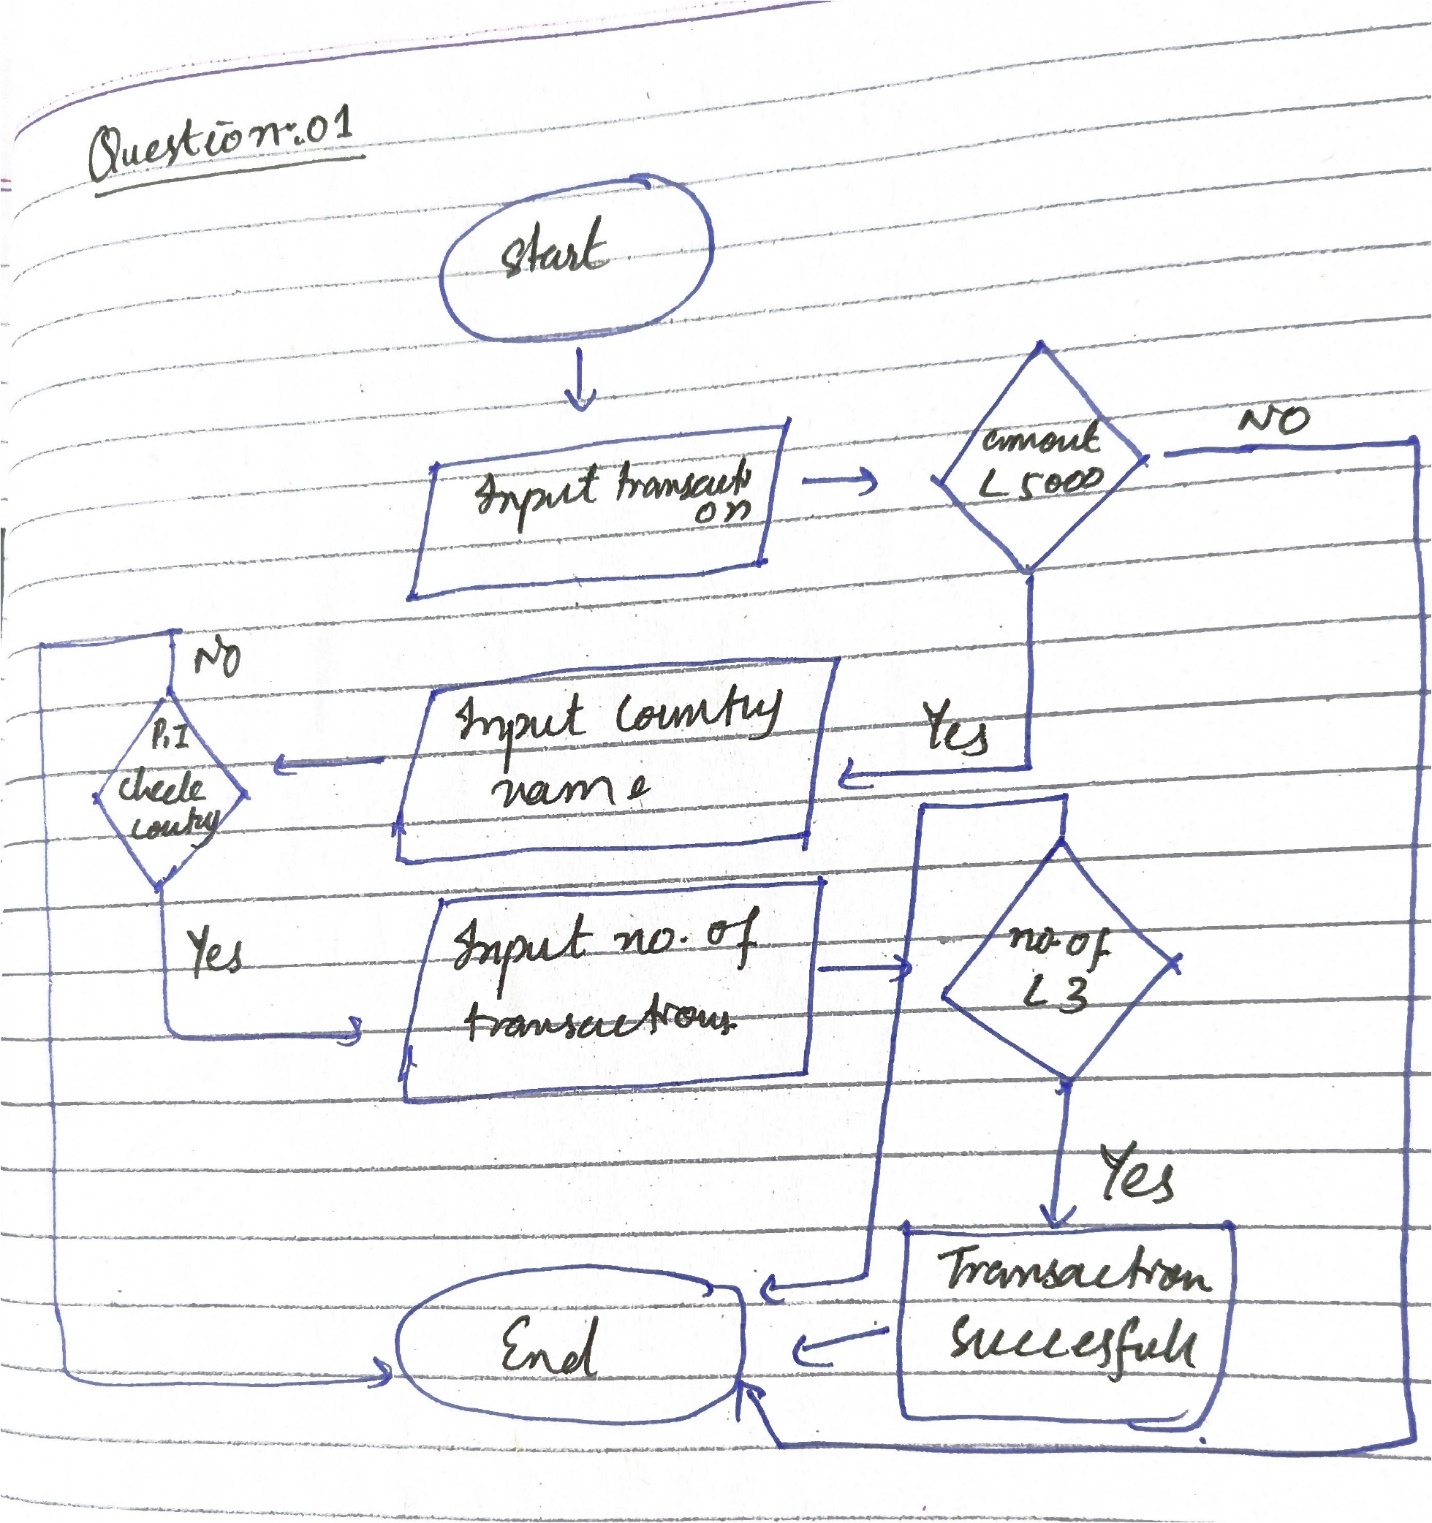 Question:.01
Start
Input transacti
on
amout
< 5000
NO
NO
Input Country
name
Yes
P,I
check
coutry
Yes
Input no. of
transactions
no. of
< 3
Yes
Transaction
successfull
End